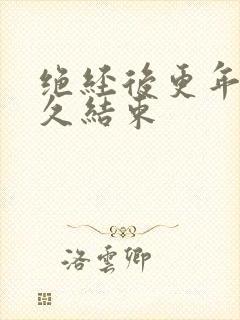 绝经後更年
久結束
洛雲卿